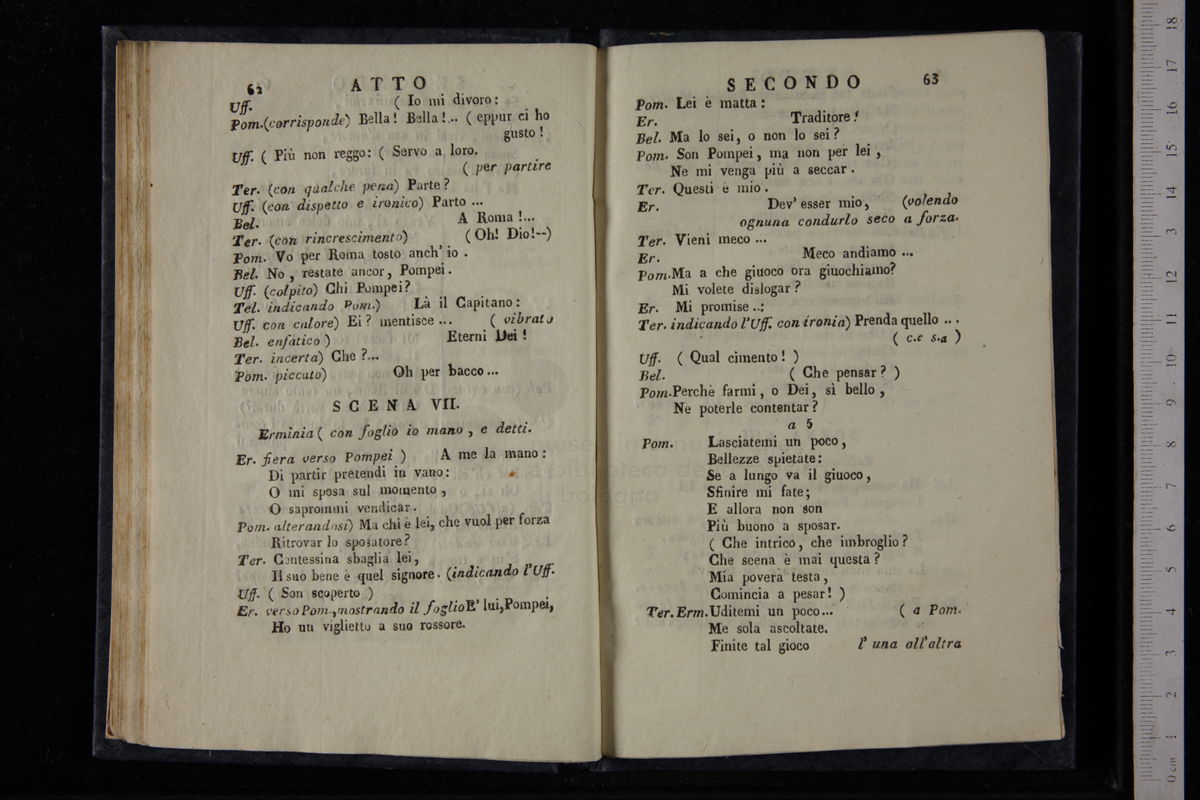 62 ATTO
Uff. ( Io mi divoro:
Pom.(corrisponde) Bella! Bella!... ( eppur ci ho
gusto !
Uff. ( Più non reggo: ( Servo a loro.
( per partire
Ter. (con qualche pena) Parte?
Uff. (con dispetto e ironico) Parto ...
Bel. A Roma !...
Ter. (con rincrescimento) ( Oh! Dio!--)
Pom. Vo per Roma tosto anch' io .
Bel. No , restate ancor, Pompei.
Uff. (colpito) Chi Pompei?
Tel. indicando Pom.) Là il Capitano:
Uff. con calore) Ei? mentisce ... ( vibrato
Bel. enfatico ) Eterni Dei !
Ter. incerta) Che ?...
Pom. piccato) Oh per bacco...
SCENA VII.
Erminia ( con foglio io mano , e detti.
Er. fiera verso Pompei ) A me la mano:
Di partir pretendi in vano:
O mi sposa sul momento ,
O saprommi vendicar.
Pom. alterandosi) Ma chi è lei, che vuol per forza
Ritrovar lo sposatore?
Ter. Contessina sbaglia lei,
Il suo bene è quel signore. (indicando l'Uff.
Uff. ( Son scoperto )
Er. verso Pom., mostrando il foglio E' lui, Pompei,
Ho un viglietto a suo rossore.
SECONDO 63
Pom. Lei è matta :
Er. Traditore!
Bel. Ma lo sei, o non lo sei?
Pom. Son Pompei, ma non per lei ,
Ne mi venga più a seccar .
Ter. Questi è mio .
Er. Dev' esser mio, (volendo
ognuna condurlo seco a forza.
Ter. Vieni meco ...
Er. Meco andiamo ...
Pom. Ma a che giuoco ora giuochiamo?
Mi volete dislogar?
Er. Mi promise ..:
Ter. indicando l'Uff. con ironia) Prenda quello ...
( c.e s.a )
Uff. ( Qual cimento! )
Bel. ( Che pensar? )
Pom. Perchè farmi, o Dei, sì bello ,
Ne poterle contentar?
a 5
Pom. Lasciatemi un poco,
Bellezze spietate:
Se a lungo va il giuoco,
Sfinire mi fate;
E allora non son
Più buono a sposar.
( Che intrico, che imbroglio?
Che scena è mai questa?
Mia povera testa,
Comincia a pesar! )
Ter. Erm. Uditemi un poco... ( a Pom.
Me sola ascoltate. 
Finite tal gioco l' una all'altra